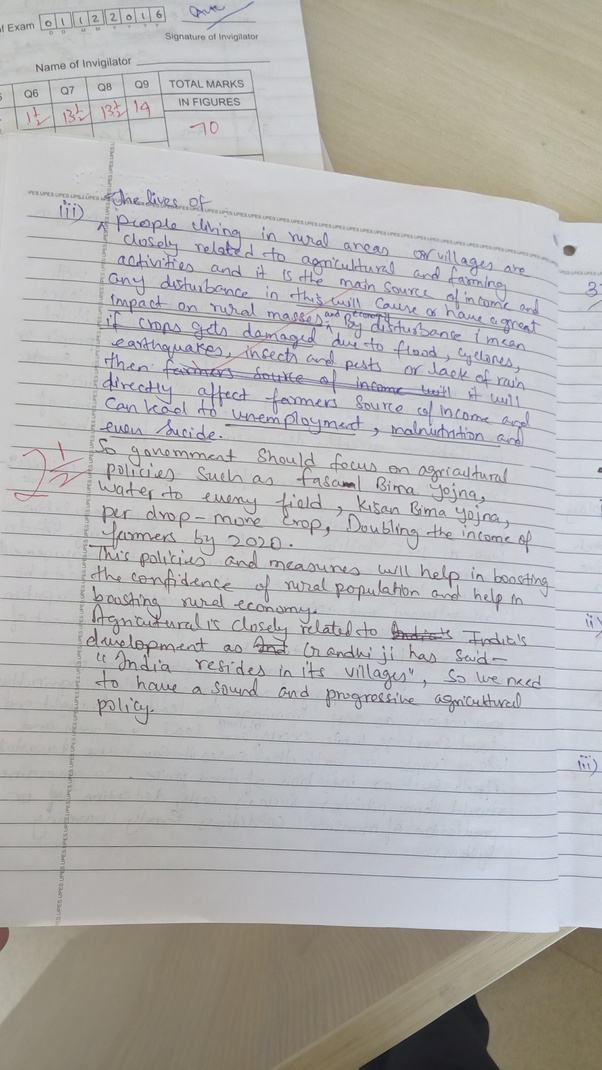 of Exam 0 1 1 2 2 0 1 6
D D M M Y Y Y Y
Signature of Invigilator
Name of Invigilator
Q6 Q7 Q8 Q9 TOTAL MARKS
IN FIGURES
1½ 13½ 13½ 14
70
The lives of
iii) ^ people living in rural areas or villages are
closely related to agricultural and farming
activities and it is the main source of income and
any disturbance in this will cause or have a great
impact on rural masses and economy. By disturbance i mean
if crops gets damaged due to flood, cyclones,
earthquakes, insects and pests or lack of rain
then farmers source of income will it will
directly affect farmers source of income and
can lead to unemployment, malnutrition and
even sucide.
2½
So government should focus on agricultural
policies such as fasal Bima Yojna,
water to every field, Kisan Bima Yojna,
per drop-more crop, Doubling the income of
farmers by 2020.
This policies and measures will help in boosting
the confidence of rural population and help in
boosting rural economy.
Agricultural is closely related to India's India's
development as Gandhiji has said-
"India resides in its villages", so we need
to have a sound and progressive agricultural
policy.
3
ii)
iii)